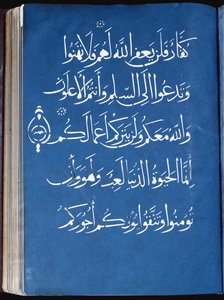 كفار فلن يغفر الله لهم فلا تهنوا
وتدعوا إلى السلم وأنتم الأعلون
والله معكم ولن يتركم أعمالكم
إنما الحيوة الدنيا لعب ولهو وإن
تؤمنوا وتتقوا يؤتكم أجوركم